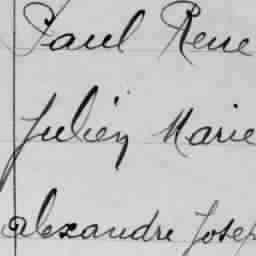 Paul Rene
Julien Marie
Alexandre Josep